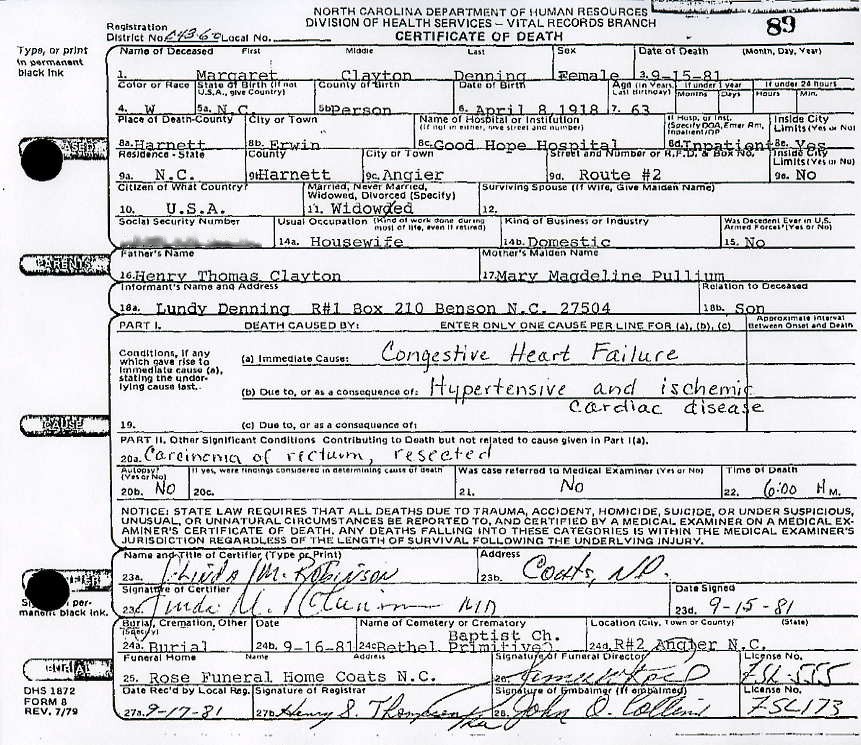 NORTH CAROLINA DEPARTMENT OF HUMAN RESOURCES
DIVISION OF HEALTH SERVICES – VITAL RECORDS BRANCH
CERTIFICATE OF DEATH
89
Registration District No. Local No.
Type, or print in permanent black ink
Name of Deceased First Middle Last Sex Date of Death (Month, Day, Year)
1. Margaret Clayton Denning Female 3. 9-15-81
Color or Race State of Birth (If not U.S.A., give Country) County of Birth Date of Birth Age (In Years, Last Birthday) If under 1 year Months Days If under 24 hours Hours Min.
4. W 5a. N.C. 5b Person 6. April 8, 1918 7. 63
Place of Death-County City or Town Name of Hospital or Institution (If not in either, give street and number) If Hosp. or Inst. (Specify DOA, Emer Rm, Inpatient/OP Inside City Limits (Yes or No)
8a. Harnett 8b. Erwin 8c. Good Hope Hospital 8d. Inpatient 8e. Yes
Residence - State County City or Town Street and Number or R.F.D. & Box No. Inside City Limits (Yes or No)
9a. N.C. 9b Harnett 9c. Angier 9d. Route #2 9e. No
Citizen of What Country? Married, Never Married, Widowed, Divorced (Specify) Surviving Spouse (If Wife, Give Maiden Name)
10. U.S.A. 11. Widowded 12.
Social Security Number Usual Occupation (Kind of work done during most of life, even if retired) Kind of Business or Industry Was Decedent Ever in U.S. Armed Forces? (Yes or No)
14a. Housewife 14b. Domestic 15. No
PARENTS
Father's Name Mother's Maiden Name
16. Henry Thomas Clayton 17. Mary Magdeline Pullium
Informant's Name and Address Relation to Deceased
18a. Lundy Denning R#1 Box 210 Benson N.C. 27504 18b. Son
PART I. DEATH CAUSED BY: ENTER ONLY ONE CAUSE PER LINE FOR (a), (b), (c) Approximate Interval Between Onset and Death
Conditions, if any which gave rise to immediate cause (a), stating the underlying cause last.
(a) Immediate Cause: Congestive Heart Failure
(b) Due to, or as a consequence of: Hypertensive and ischemic
cardiac disease
CAUSE
19. (c) Due to, or as a consequence of:
PART II. Other Significant Conditions Contributing to Death but not related to cause given in Part I(a).
20a. Carcinoma of rectum, resected
Autopsy? (Yes or No) If yes, were findings considered in determining cause of death Was case referred to Medical Examiner (Yes or No) Time of Death
20b. No 20c. 21. No 22. 6:00 M.
NOTICE: STATE LAW REQUIRES THAT ALL DEATHS DUE TO TRAUMA, ACCIDENT, HOMICIDE, SUICIDE, OR UNDER SUSPICIOUS,
UNUSUAL, OR UNNATURAL CIRCUMSTANCES BE REPORTED TO, AND CERTIFIED BY A MEDICAL EXAMINER ON A MEDICAL EX-
AMINER'S CERTIFICATE OF DEATH. ANY DEATHS FALLING INTO THESE CATEGORIES IS WITHIN THE MEDICAL EXAMINER'S
JURISDICTION REGARDLESS OF THE LENGTH OF SURVIVAL FOLLOWING THE UNDERLYING INJURY.
Name and Title of Certifier (Type or Print) Address
23a. Linda M. Robinson 23b. Coats, N.C.
Signature of Certifier Date Signed
23c. Linda M. MD 23d. 9-15-81
permanent black ink.
Burial, Cremation, Other (Specify) Date Name of Cemetery or Crematory Location (City, Town or County) (State)
24a. Burial 24b. 9-16-81 24c Bethel Primitive Baptist Ch. 24d. R#2 Angier N.C.
BURIAL
Funeral Home Name Address Signature of Funeral Director License No.
25. Rose Funeral Home Coats N.C. 26. FSL-555
DHS 1872
FORM 8
REV. 7/79
Date Rec'd by Local Reg. Signature of Registrar Signature of Embalmer (If embalmed) License No.
27a. 9-17-81 27b. Henry S. Thompson 28. John O. Collins FSL 173